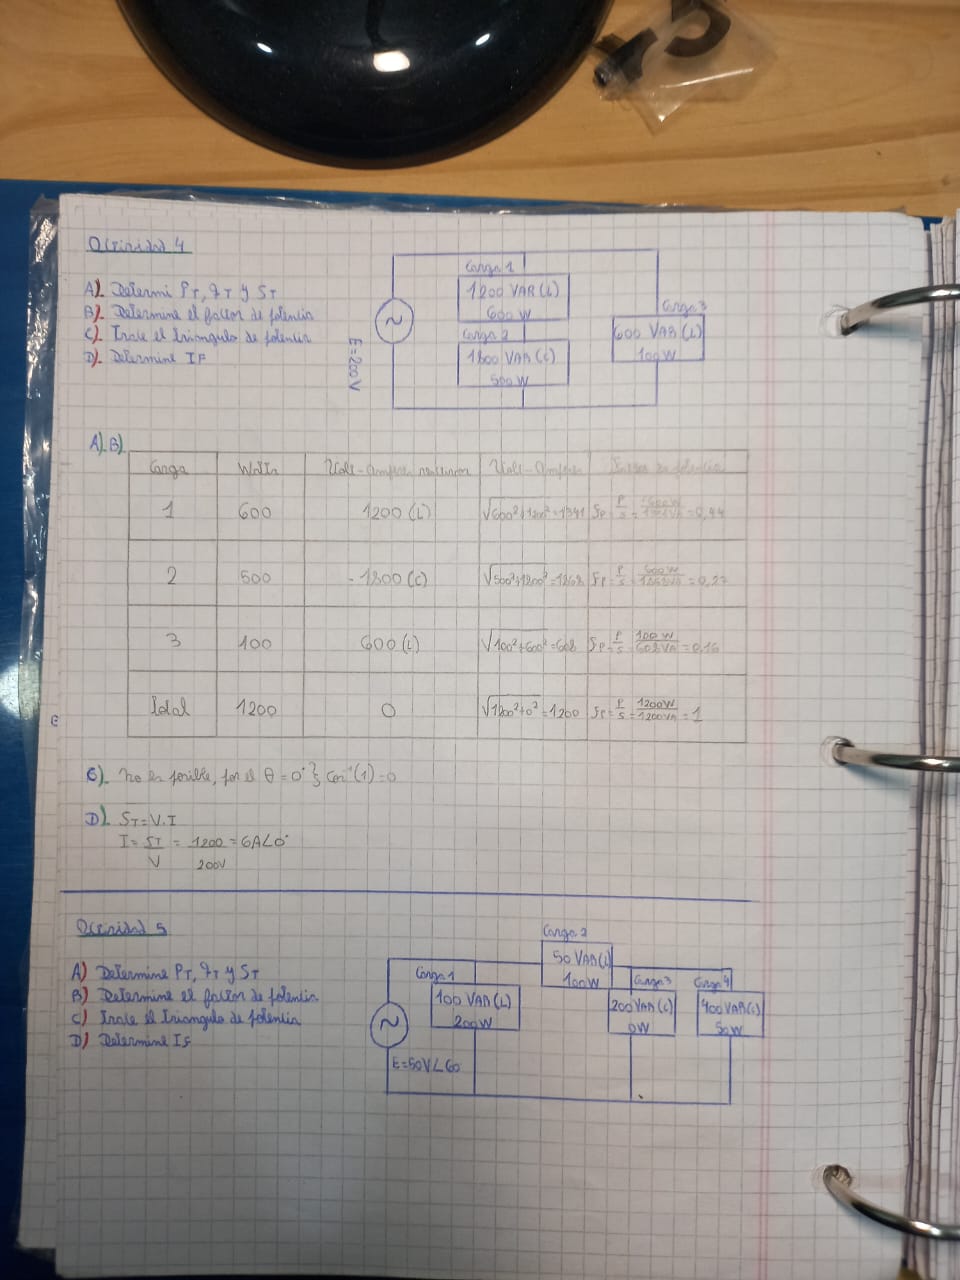 Actividad 4
A). Determi PT, qT y ST
B). Determine el factor de potencia
C). Trace el triangulo de potencia
D). Determine IF
E=200V
Carga 1
1200 VAR(L)
600 W
Carga 2
1800 VAR(C)
500 W
Carga 3
600 VAR(L)
100W
A). B).
Carga Watts Volt-Amper reactivos Volt-Amper Factor de potencia
1 600 1200 (L) √600²+1200²=1341 Fp=P/S=600W/1341VA=0,44
2 500 -1800 (C) √500²+1800²=1868 Fp=P/S=500W/1868VA=0,27
3 100 600 (L) √100²+600²=608 Fp=P/S=100W/608VA=0,16
Total 1200 0 √1200²+0²=1200 Fp=P/S=1200W/1200VA=1
C). No es posible, por el θ=0° } cos⁻¹(1)=0
D). ST=V.I
I=ST/V=1200/200V=6A∠0°
Actividad 5
A) Determine PT, qT y ST
B) Determine el factor de potencia
C) Trace el triangulo de potencia
D) Determine IS
E=50V∠60
Carga 1
100 VAR(L)
200W
Carga 2
50 VAR(L)
100W
Carga 3
200 VAR(L)
0W
Carga 4
400 VAR(C)
50W